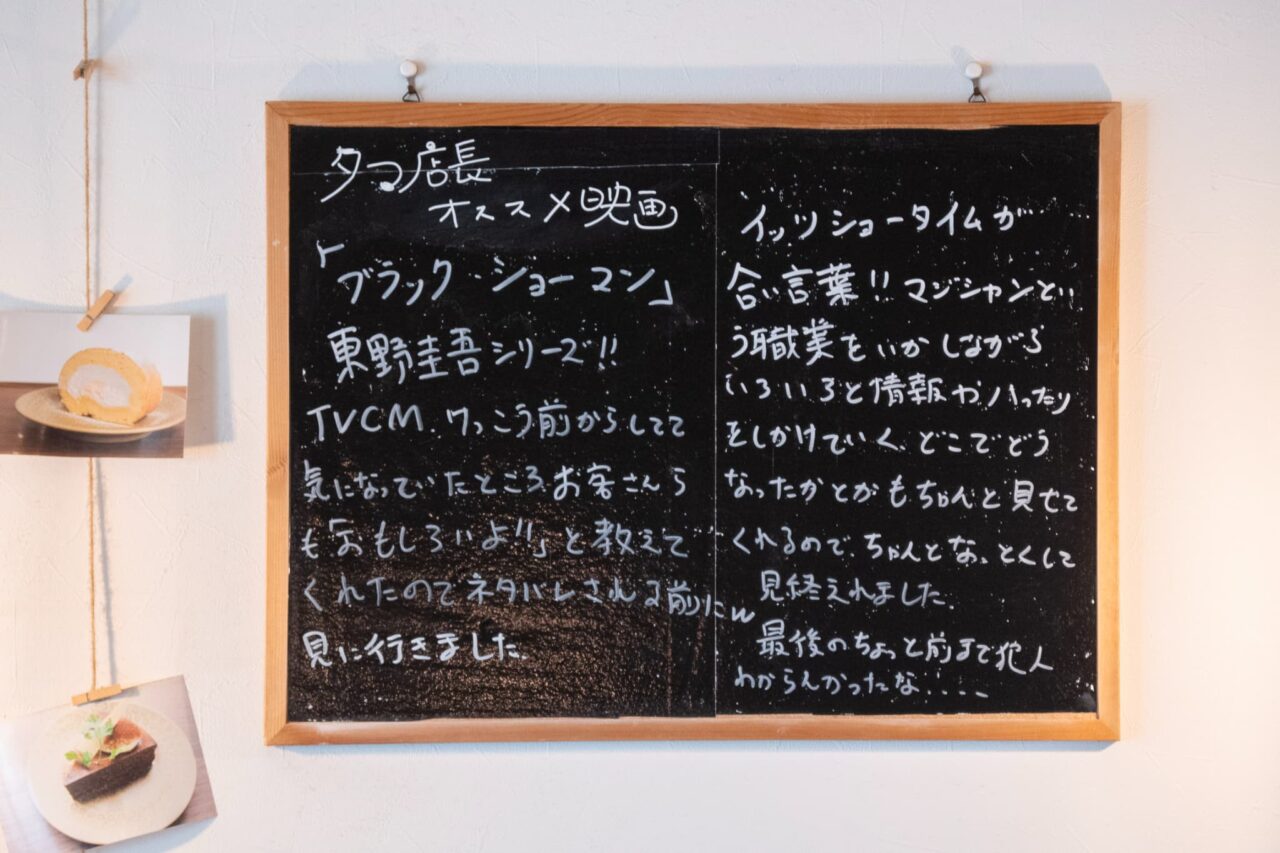 タコ店長
オススメ映画
「ブラック・ショーマン」
東野圭吾シリーズ!!
TVCM、けっこう前からしてて
気になっていたところ、お客さんら
も「おもしろいよ!!」と教えて
くれたのでネタバレされる前にw
見に行きました。
イッツショータイムが
合い言葉!! マジシャンとい
う職業をいかしながら
いろいろと情報やハッたり
をしかけていく、どこでどう
なったかとかもちゃんと見せて
くれるので、ちゃんとなっとくして
見終えれました。
最後のちょっと前まで犯人
わからんかったな!....